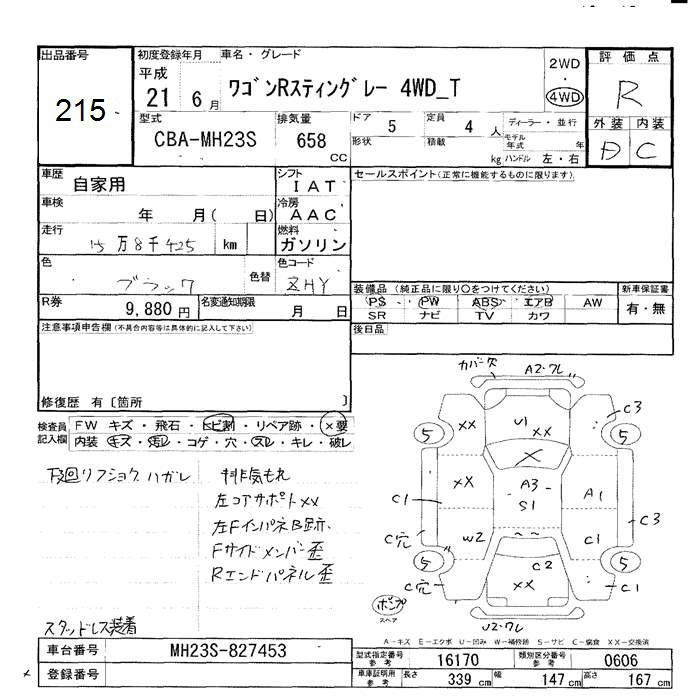 出品番号
215
初度登録年月
平成
21 6 月
車名・グレード
ワゴンRスティングレー 4WD_T
2WD
・
4WD
評価点
R
外装 内装
D C
型式
CBA-MH23S
排気量
658
CC
ドア
5
形状
定員
4 人
積載
kg
ディーラー・並行
モデル年式 年
ハンドル 左・右
車歴
自家用
シフト
IAT
セールスポイント(正常に機能するものに限ります)
車検
年 月( 日)
冷房
AAC
走行
15万8千425 km
燃料
ガソリン
色
ブラック
色替
色コード
ZHY
装備品 (純正品に限り○をつけてください)
PS PW ABS エアB AW
SR ナビ TV カワ
新車保証書
有・無
R券
9,880 円
名変通知期限
月 日
後日品
注意事項申告欄(不具合内容等は具体的に記入して下さい)
修復歴 有〔箇所 〕
検査員記入欄
FW キズ・飛石・トビ割・リペア跡・×要
内装 キズ・汚レ・コゲ・穴・スレ・キレ・破レ
下回リフショク ハガレ
排気もれ
左コアサポートXX
左FインパネB跡
Fサイドメンバー歪
Rエンドパネル歪
スタッドレス装着
カバー欠
A2・ワレ
C3
XX
U1
XX
5
5
X
XX
A3
S1
A1
C1
C3
C穴
W2
C1
5
C2
5
C穴
XX
C1
ポンプ
スペア
U2・ワレ
A－キズ E－エクボ U－凹み W－補修跡 S－サビ C－腐食 XX－交換済
車台番号
MH23S-827453
登録番号
型式指定番号
参考
16170
類別区分番号
参考
0606
車庫証明用
参考
長さ
339 cm
幅
147 cm
高さ
167 cm